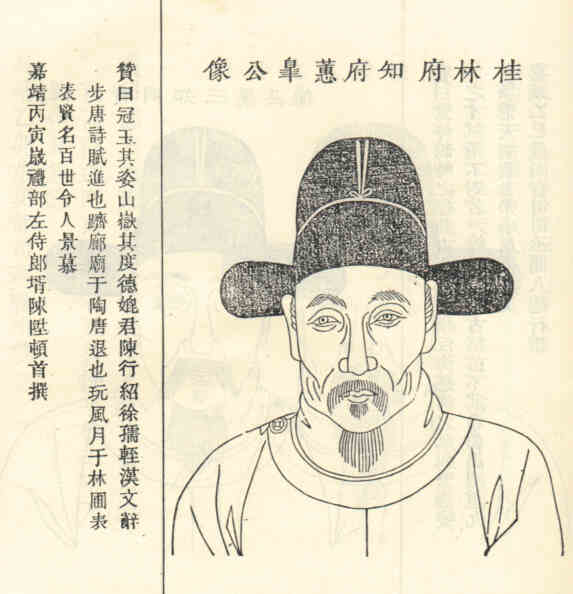 桂林府知府蕙皐公像
贊曰冠玉其姿山嶽其度德媲君陳行紹徐孺輕漢文辭
步唐詩賦進也躋廊廟于陶唐退也玩風月于林圃表
表賢名百世令人景慕
嘉靖丙寅歲禮部左侍郎壻陳陞頓首撰